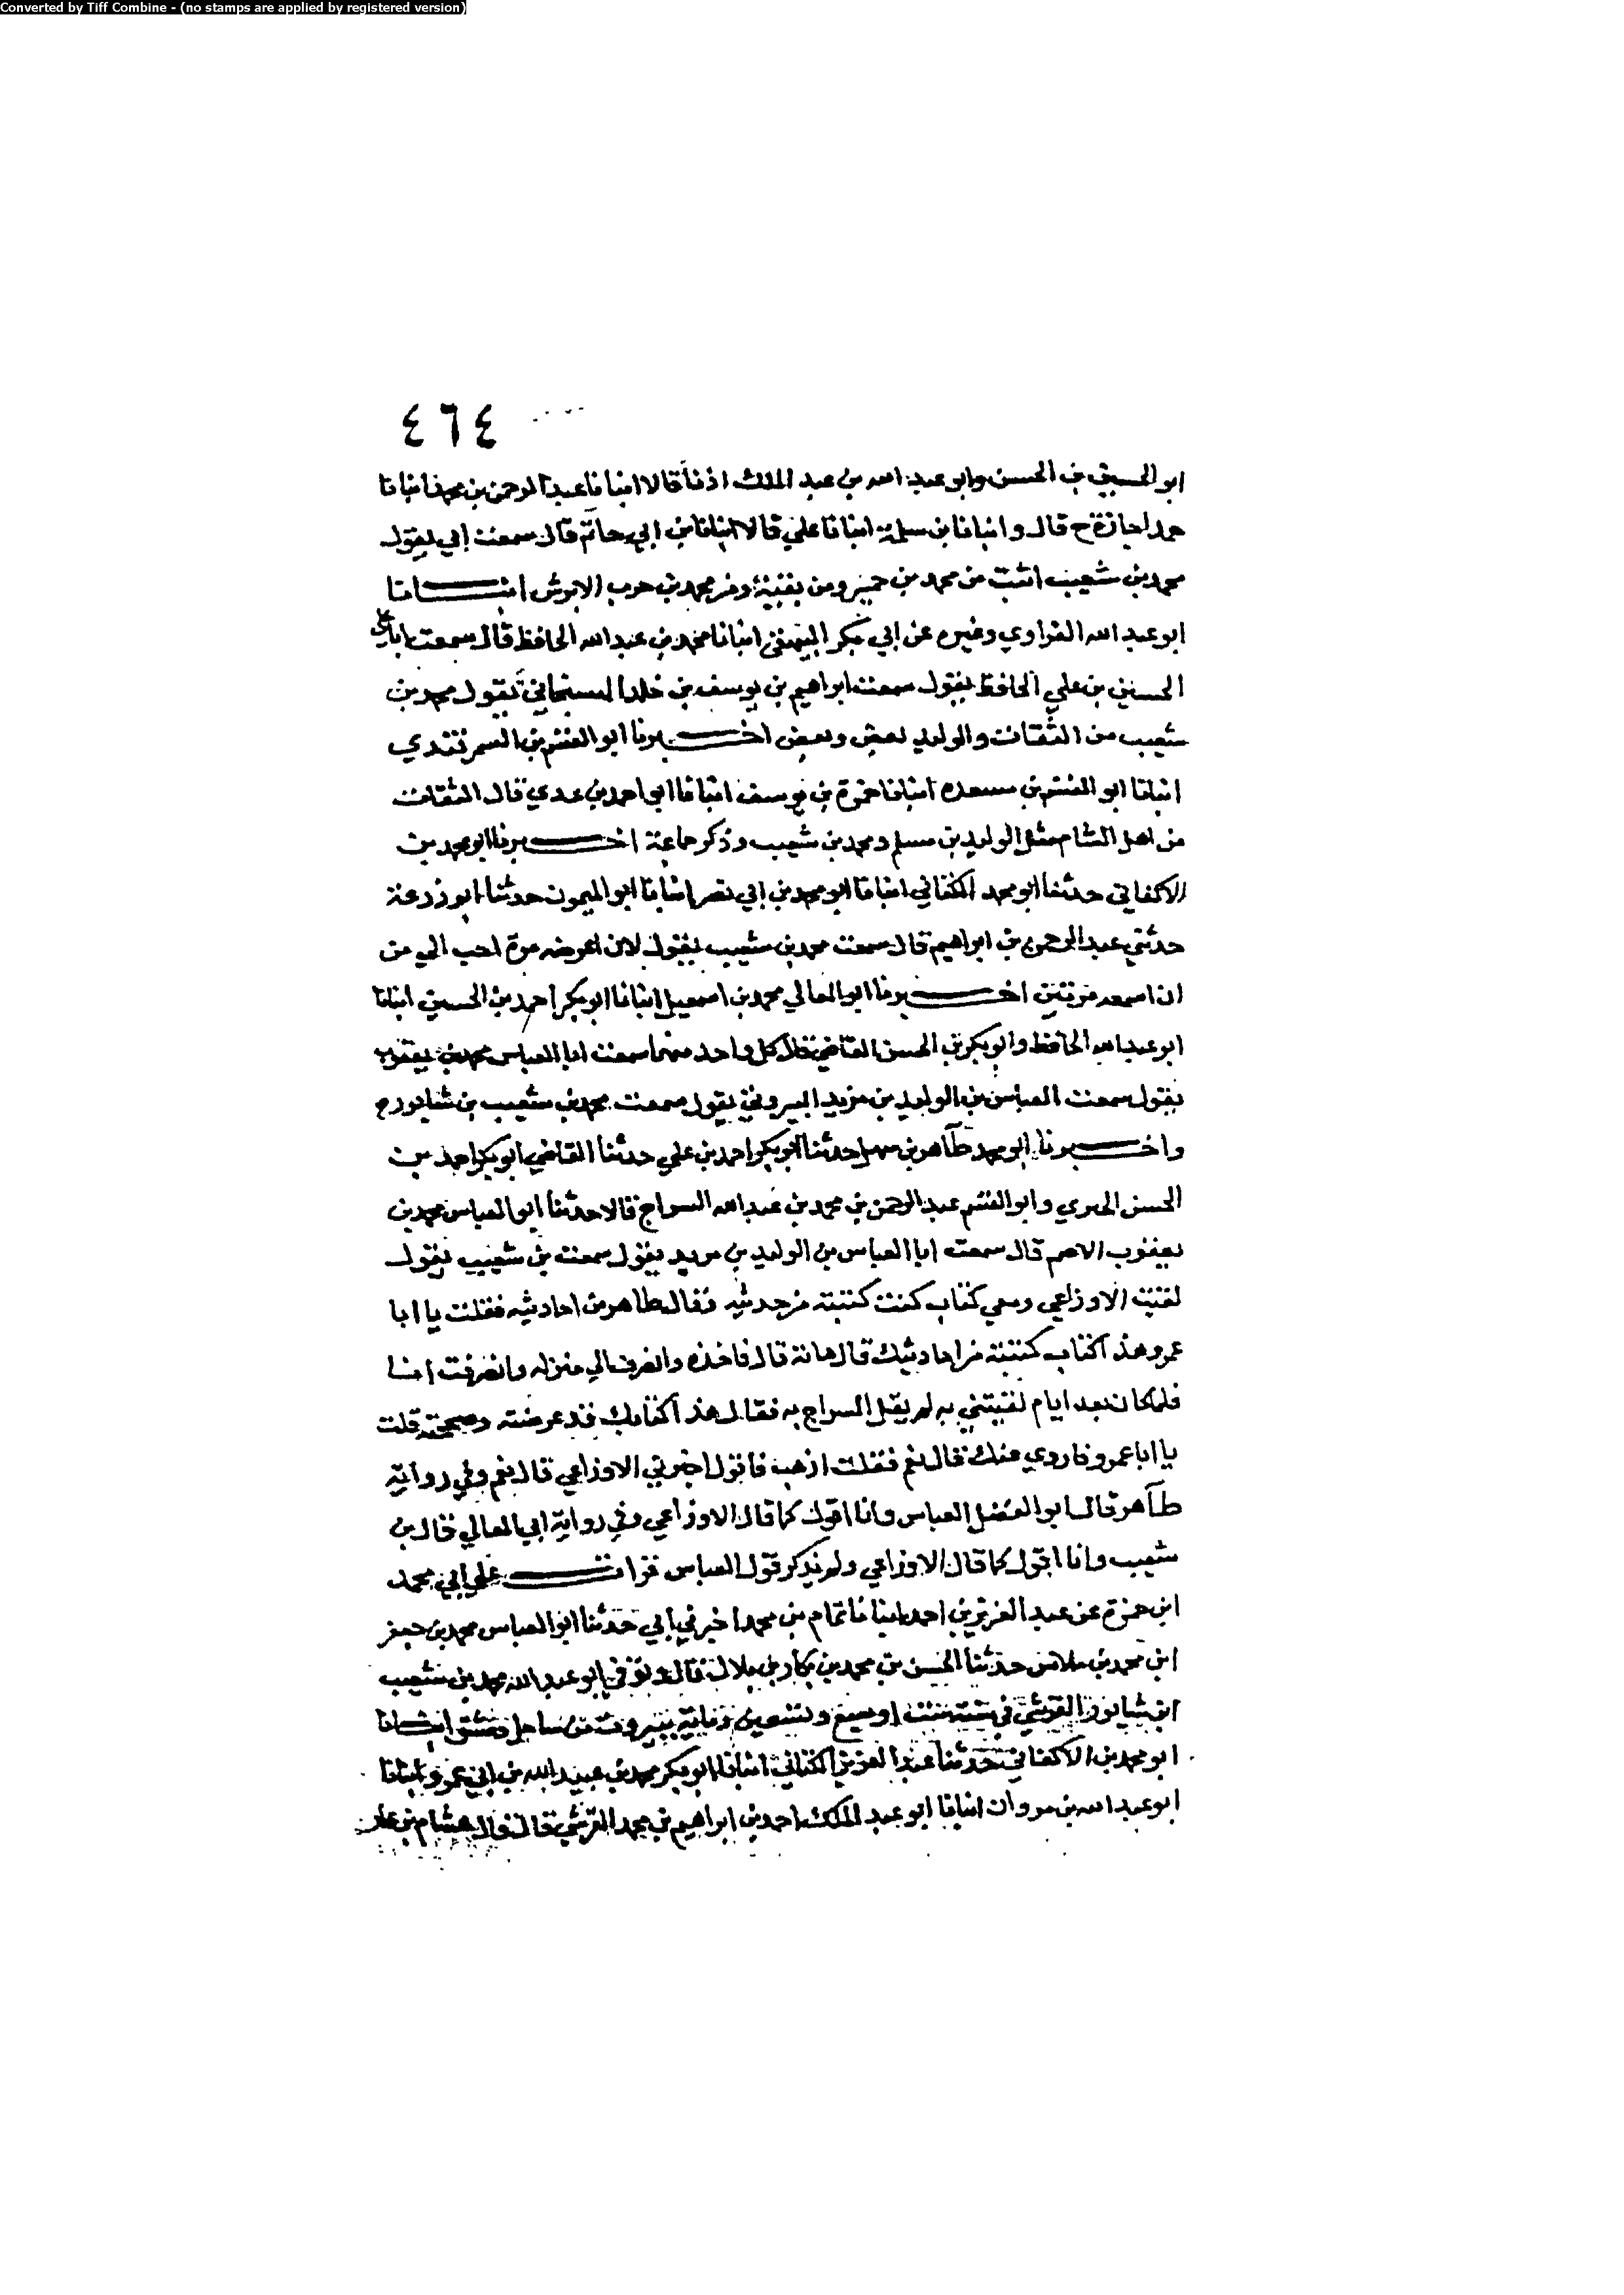 Converted by Tiff Combine - (no stamps are applied by registered version)
٤٦٤
ابو الحسين بن الحسن وابو عبد الله بن عبد الملك اذنا قالا انبانا عبد الرحمن بن محمد انبانا
حمد اجازة ح قال وانبانا بن سلمة انبانا علي قالا انبانا بن ابي حاتم قال سمعت ابي يقول
محمد بن شعيب اثبت من محمد بن حمير ومن بقية ومن محمد بن حرب الابرش انبـــانا
ابو عبد الله الفراوي وغيره عن ابي بكر البيهقي انبانا محمد بن عبد الله الحافظ قال سمعت ابا علي
الحسين بن علي الحافظ يقول سمعت ابراهيم بن يوسف بن خلد الهسنجاني يقول محمد بن
شعيب من الثقات والوليد بعض وبعض اخـــبرنا ابو القسم بن السمرقندي
انبانا ابو القسم بن مسعده انبانا حمزة بن يوسف انبانا ابو احمد بن عدي قال الثقات
من اهل الشام مثل الوليد بن مسلم ومحمد بن شعيب وذكر جماعة اخـــبرنا ابو محمد بن
الاكفاني حدثنا ابو محمد الكتاني انبانا ابو محمد بن ابي نصر انبانا ابو الميمون حدثنا ابو زرعة
حدثني عبد الرحمن بن ابراهيم قال سمعت محمد بن شعيب يقول لان اعرضه مرة احب الي من
ان اسمعه مرتين اخـــبرنا ابو المعالي محمد بن اسمعيل انبانا ابو بكر احمد بن الحسين انبانا
ابو عبد الله الحافظ وابو بكر بن الحسن القاضي قال كل واحد منهما سمعت ابا العباس محمد بن يعقوب
يقول سمعت العباس بن الوليد بن مزيد البيروتي يقول سمعت محمد بن شعيب بن شابور ح
واخـــبرنا ابو محمد طاهر بن سهل حدثنا ابو بكر احمد بن علي حدثنا القاضي ابو بكر احمد بن
الحسن الحيري وابو القسم عبد الرحمن بن محمد بن عبد الله السراج قالا حدثنا ابو العباس محمد بن
يعقوب الاصم قال سمعت ابا العباس بن الوليد بن مريد يقول سمعت بن شعيب يقول
لقيت الاوزاعي ومعي كتاب كنت كتبته من حديثه وقال طاهر من احاديثه فقلت يا ابا
عمرو هذا كتاب كتبته من احاديثك قال هاته قال فاخذه وانصرف الي منزله وانصرفت انا
فلما كان بعد ايام لقيتني به لم يقل السراج به فقال هذا كتابك قد عرضته وصححته قلت
يا ابا عمرو فاروي عنك قال نعم فقلت اذهب فاقول اخبرني الاوزاعي قال نعم وفي رواية
طاهر قال ابو الفضل العباس وانا اقول كما قال الاوزاعي وفي رواية ابي المعالي قال بن
شعيب وانا اقول كما قال الاوزاعي ولم يذكر قول العباس قرات علي ابي محمد
ابن حمزة عن عبد العزيز بن احمد انبانا تمام بن محمد اخبرني ابي حدثنا ابو العباس محمد بن جعفر
ابن محمد بن ملاس حدثنا الحسن بن محمد بن بكار بن بلال قال وتوفي ابو عبد الله محمد بن شعيب
ابن شابور القرشي في سنة ست او سبع وتسعين وماية ببيروت من ساحل دمشق انبـــانا
ابو محمد بن الاكفاني حدثنا عبد العزيز الكتاني انبانا ابو بكر محمد بن عبيد الله بن ابي عمرو انبانا
ابو عبد الله بن مروان انبانا ابو عبد الملك احمد بن ابراهيم بن محمد القرشي قال قال هشام بن عمار